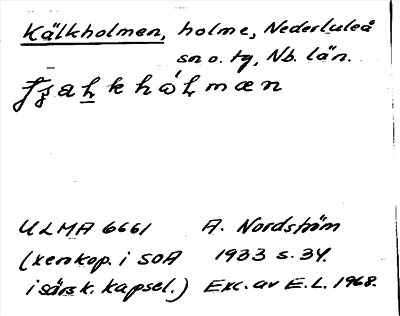 Kälkholmen, holme, Nederluleå
sn o. tg, Nb. län.
ULMA 6661 A. Nordström
(xerokop. i SOA 1933 s. 34.
i särsk. kapsel.) Exc. av E. L. 1968.